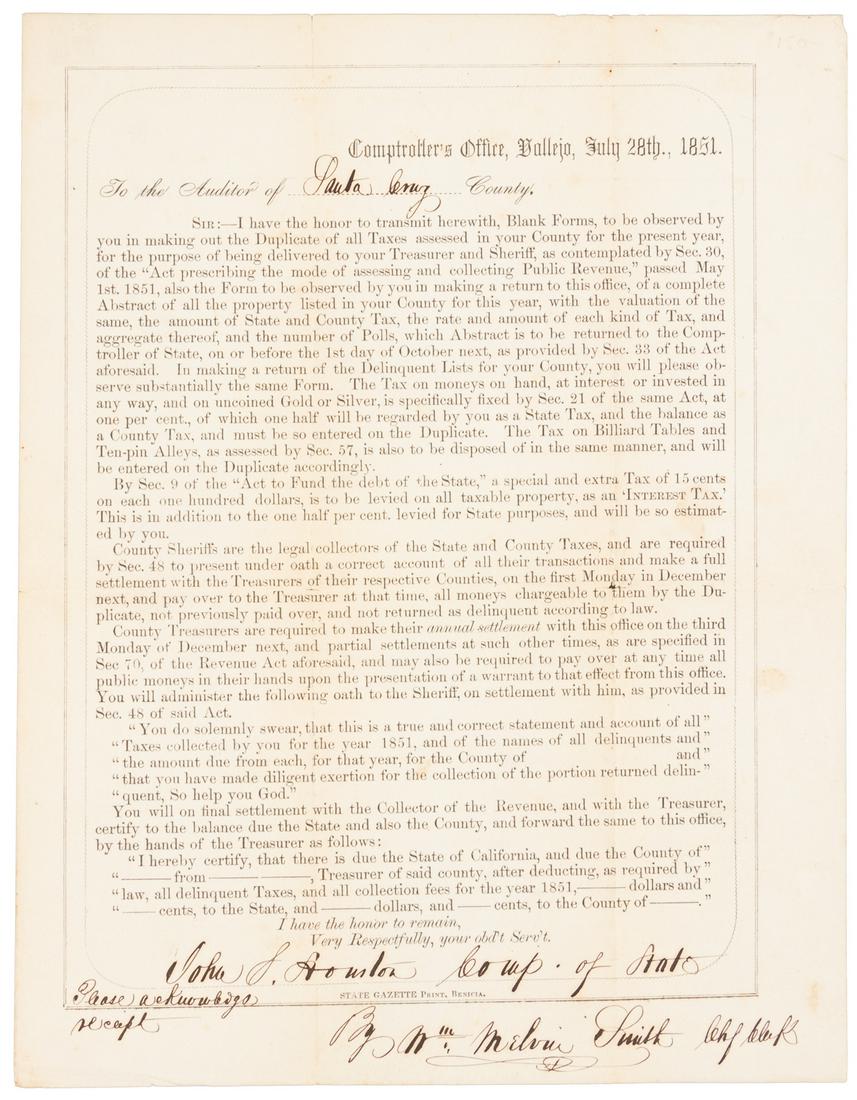 150-
Comptroller's Office, Vallejo, July 28th., 1851.
To the Auditor of Santa Cruz County.
SIR:—I have the honor to transmit herewith, Blank Forms, to be observed by
you in making out the Duplicate of all Taxes assessed in your County for the present year,
for the purpose of being delivered to your Treasurer and Sheriff, as contemplated by Sec. 30,
of the “Act prescribing the mode of assessing and collecting Public Revenue,” passed May
1st. 1851, also the Form to be observed by you in making a return to this office, of a complete
Abstract of all the property listed in your County for this year, with the valuation of the
same, the amount of State and County Tax, the rate and amount of each kind of Tax, and
aggregate thereof, and the number of Polls, which Abstract is to be returned to the Comp-
troller of State, on or before the 1st day of October next, as provided by Sec. 33 of the Act
aforesaid. In making a return of the Delinquent Lists for your County, you will please ob-
serve substantially the same Form. The Tax on moneys on hand, at interest or invested in
any way, and on uncoined Gold or Silver, is specifically fixed by Sec. 21 of the same Act, at
one per cent., of which one half will be regarded by you as a State Tax, and the balance as
a County Tax, and must be so entered on the Duplicate. The Tax on Billiard Tables and
Ten-pin Alleys, as assessed by Sec. 57, is also to be disposed of in the same manner, and will
be entered on the Duplicate accordingly.
By Sec. 9 of the “Act to Fund the debt of the State,” a special and extra Tax of 15 cents
on each one hundred dollars, is to be levied on all taxable property, as an ‘INTEREST TAX.’
This is in addition to the one half per cent. levied for State purposes, and will be so estimat-
ed by you.
County Sheriffs are the legal collectors of the State and County Taxes, and are required
by Sec. 48 to present under oath a correct account of all their transactions and make a full
settlement with the Treasurers of their respective Counties, on the first Monday in December
next, and pay over to the Treasurer at that time, all moneys chargeable to them by the Du-
plicate, not previously paid over, and not returned as delinquent according to law.
County Treasurers are required to make their annual settlement with this office on the third
Monday of December next, and partial settlements at such other times, as are specified in
Sec 70, of the Revenue Act aforesaid, and may also be required to pay over at any time all
public moneys in their hands upon the presentation of a warrant to that effect from this office.
You will administer the following oath to the Sheriff, on settlement with him, as provided in
Sec. 48 of said Act.
“You do solemnly swear, that this is a true and correct statement and account of all”
“Taxes collected by you for the year 1851, and of the names of all delinquents and”
“the amount due from each, for that year, for the County of and”
“that you have made diligent exertion for the collection of the portion returned delin-”
“quent, So help you God.”
You will on final settlement with the Collector of the Revenue, and with the Treasurer,
certify to the balance due the State and also the County, and forward the same to this office,
by the hands of the Treasurer as follows:
“I hereby certify, that there is due the State of California, and due the County of”
“——— from —— ———, Treasurer of said county, after deducting, as required by”
“law, all delinquent Taxes, and all collection fees for the year 1851,——— dollars and”
“—— cents, to the State, and ——— dollars, and —— cents, to the County of ———.”
I have the honor to remain,
Very Respectfully, your obd't Serv't.
John S. Houston Comp. of State
STATE GAZETTE PRINT, BENICIA.
Please acknowledge
receipt
By Wm. Melvin Smith Chf Clerk